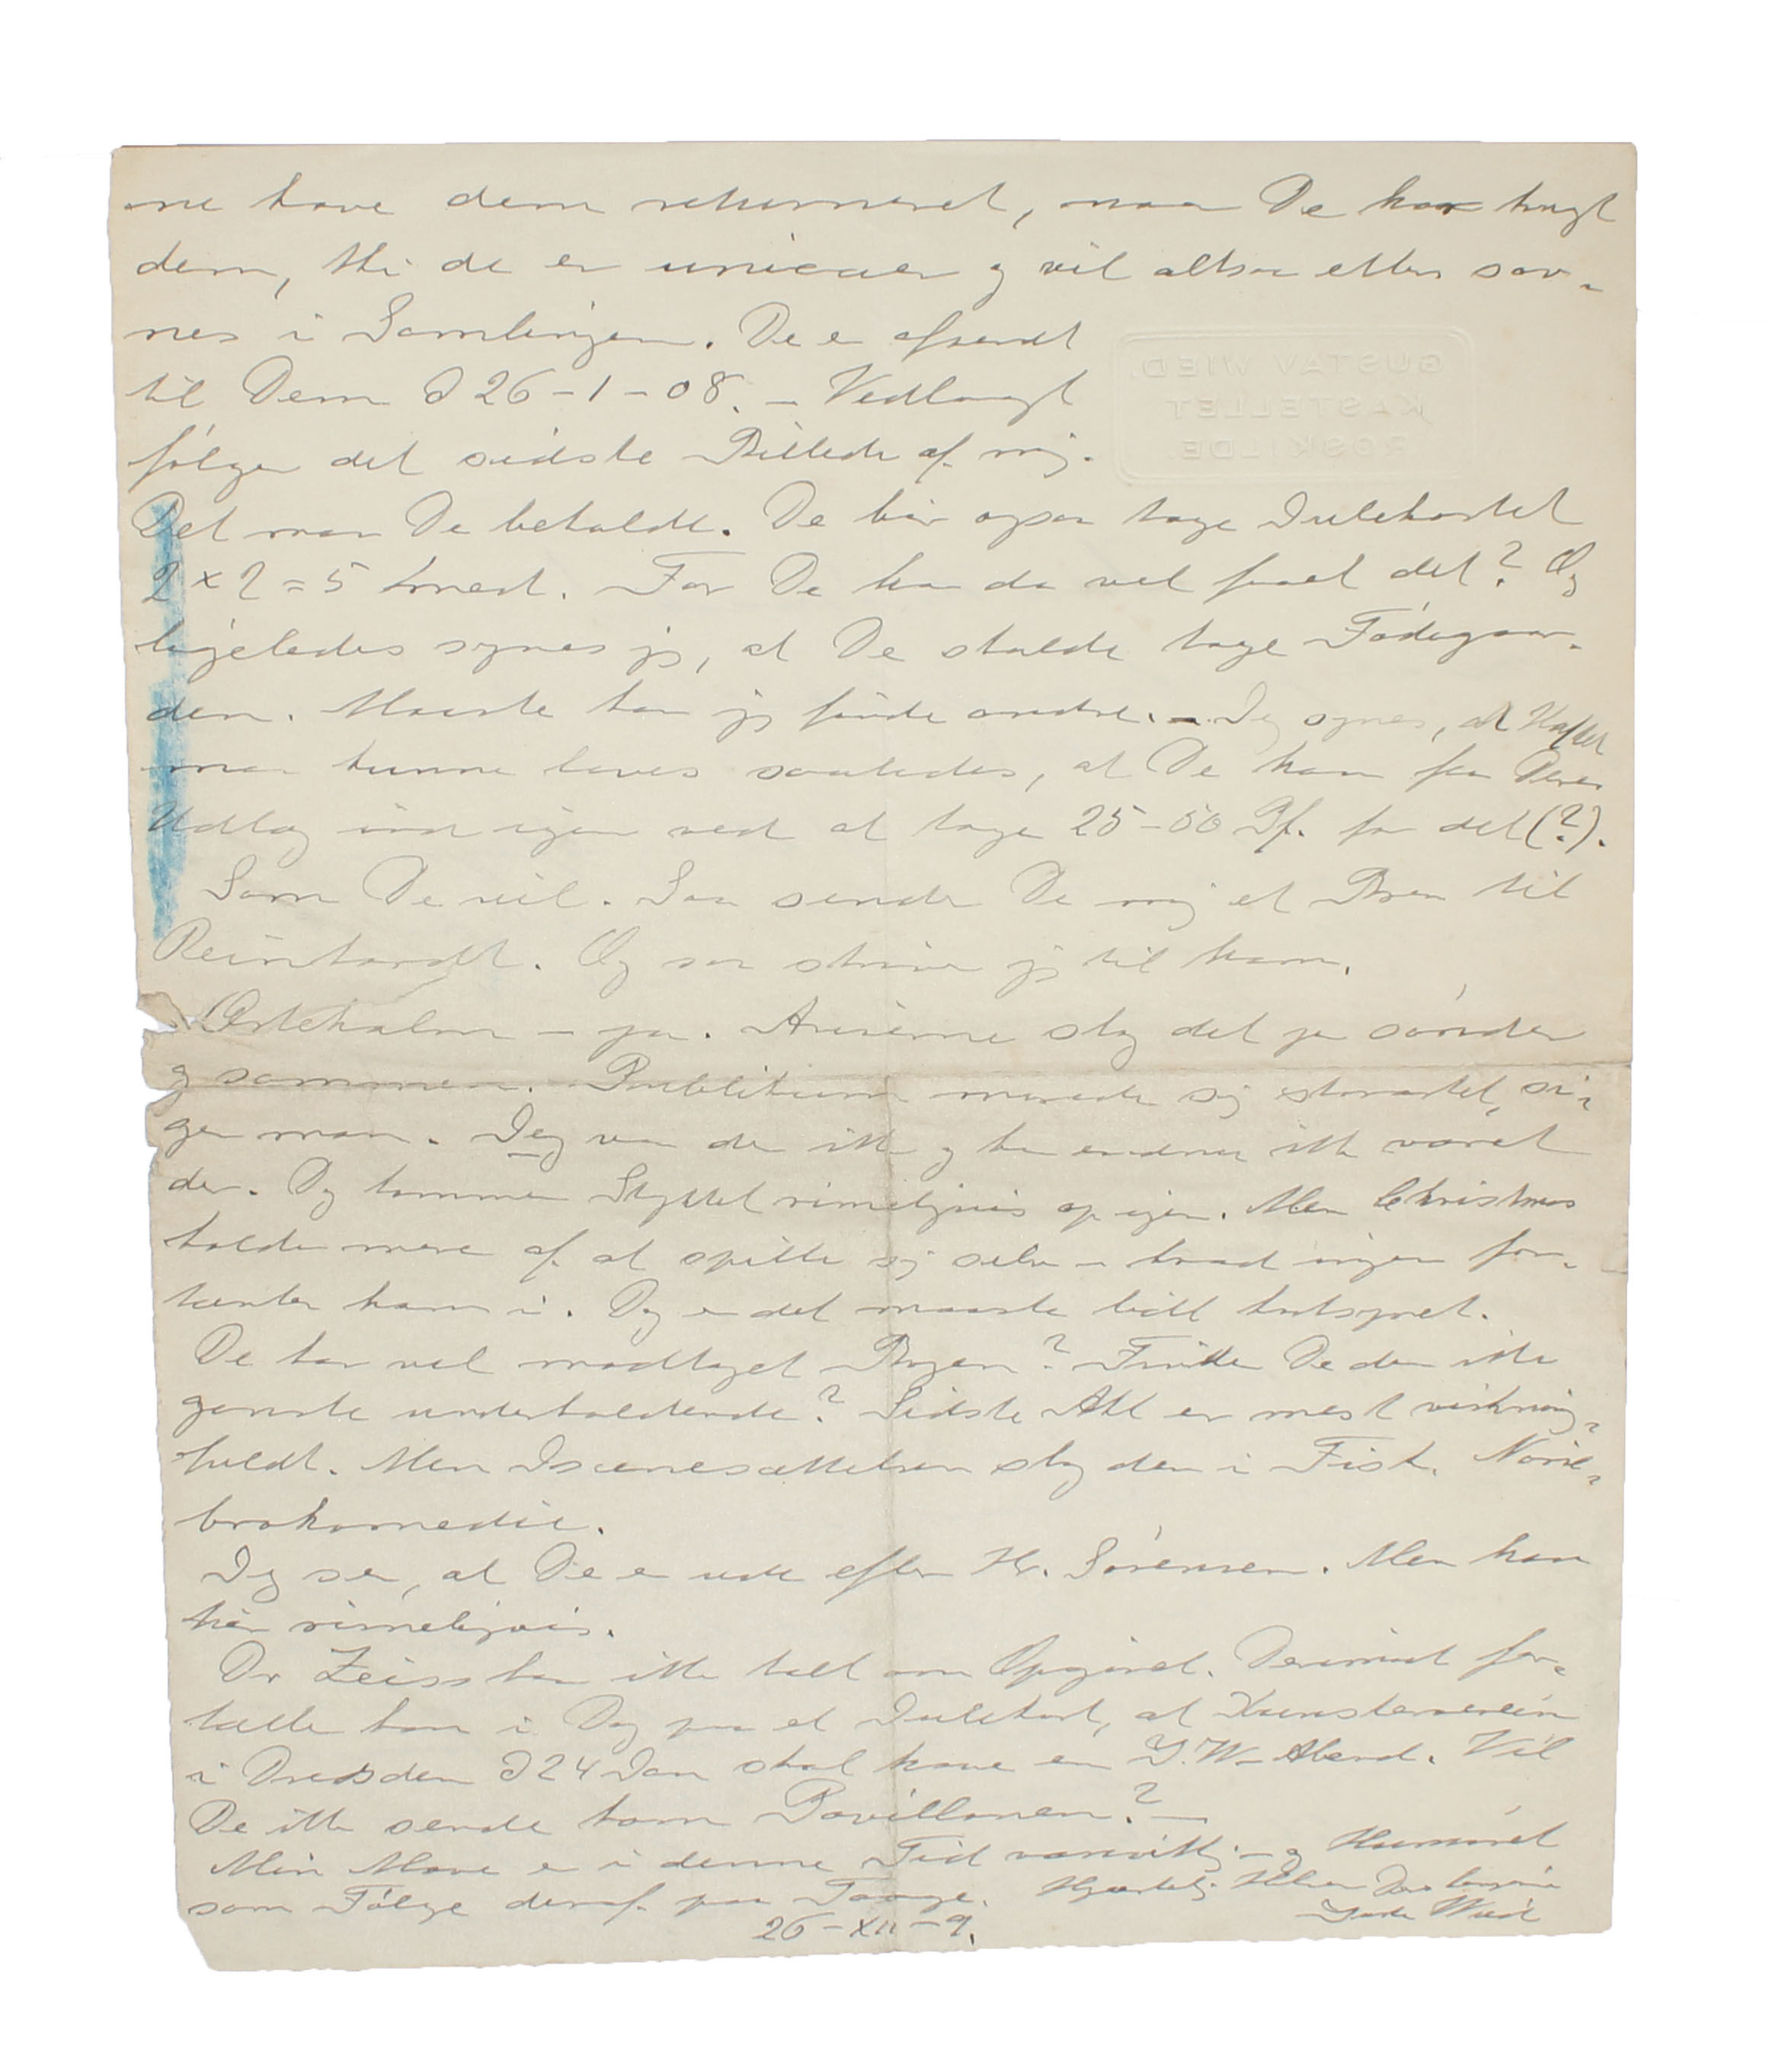 ne have dem returneret, naar De har brugt
dem, thi de er unicaer og vil altsaa ellers sav-
nes i Samlingen. De er afsendt
til Dem d 26-1-08. – Vedlagt
følger det sidste Billede af mig.
Det maa De beholde. De bør ogsaa tage Julekortet
2 x 2 = 5 med. For De har da vel faaet det? Og
ligeledes synes jeg, at De skulde tage Fødegaar-
den. Maaske kan jeg finde andre. – Jeg synes, at Hæftet
maa kunne laves saaledes, at De kan faa Deres
Udlæg ind igen ved at tage 25-50 Pf. for det (?).
Som De vil. Saa sender De mig et Brev til
Reinhardt. Og saa skriver jeg til ham.
Østeholm – ja. Aviserne slog det jo sønder
og sammen. Publikum morede sig storartet, si-
ger man. Jeg var der ikke og har endnu ikke været
der. Dog kommer Stykket rimeligvis op igen. Men Christmas
holder mere af at spille sig selv – hvad ingen for-
tænker ham i. Dog er det maaske lidt kortsynet.
De har vel modtaget Bogen? Finder De den ikke
ganske underholdende? Sidste Akt er mest virknings-
fuldt. Men Iscenesættelsen slog den i Fisk. Nørre-
brokomedie.
Jeg ser, at De er ude efter Hr. Sörensen. Men han
bør rimeligvis.
Dr Zeiss har ikke talt om Opgøret. Derimod for-
tæller han i Dag paa et Julekort, at Kunstverein
i Dresden d 24 Jan skal have en G.W-Abend. Vil
De ikke sende ham Pavillonen? –
Min Mave er i denne Tid vanvittig – og Humøret
som Følge deraf paa Tange. Hjærtelig Hilsen Deres hengivne
Gustav Wied
26-XII-9.
GUSTAV WIED
KASTELLET
ROSKILDE.